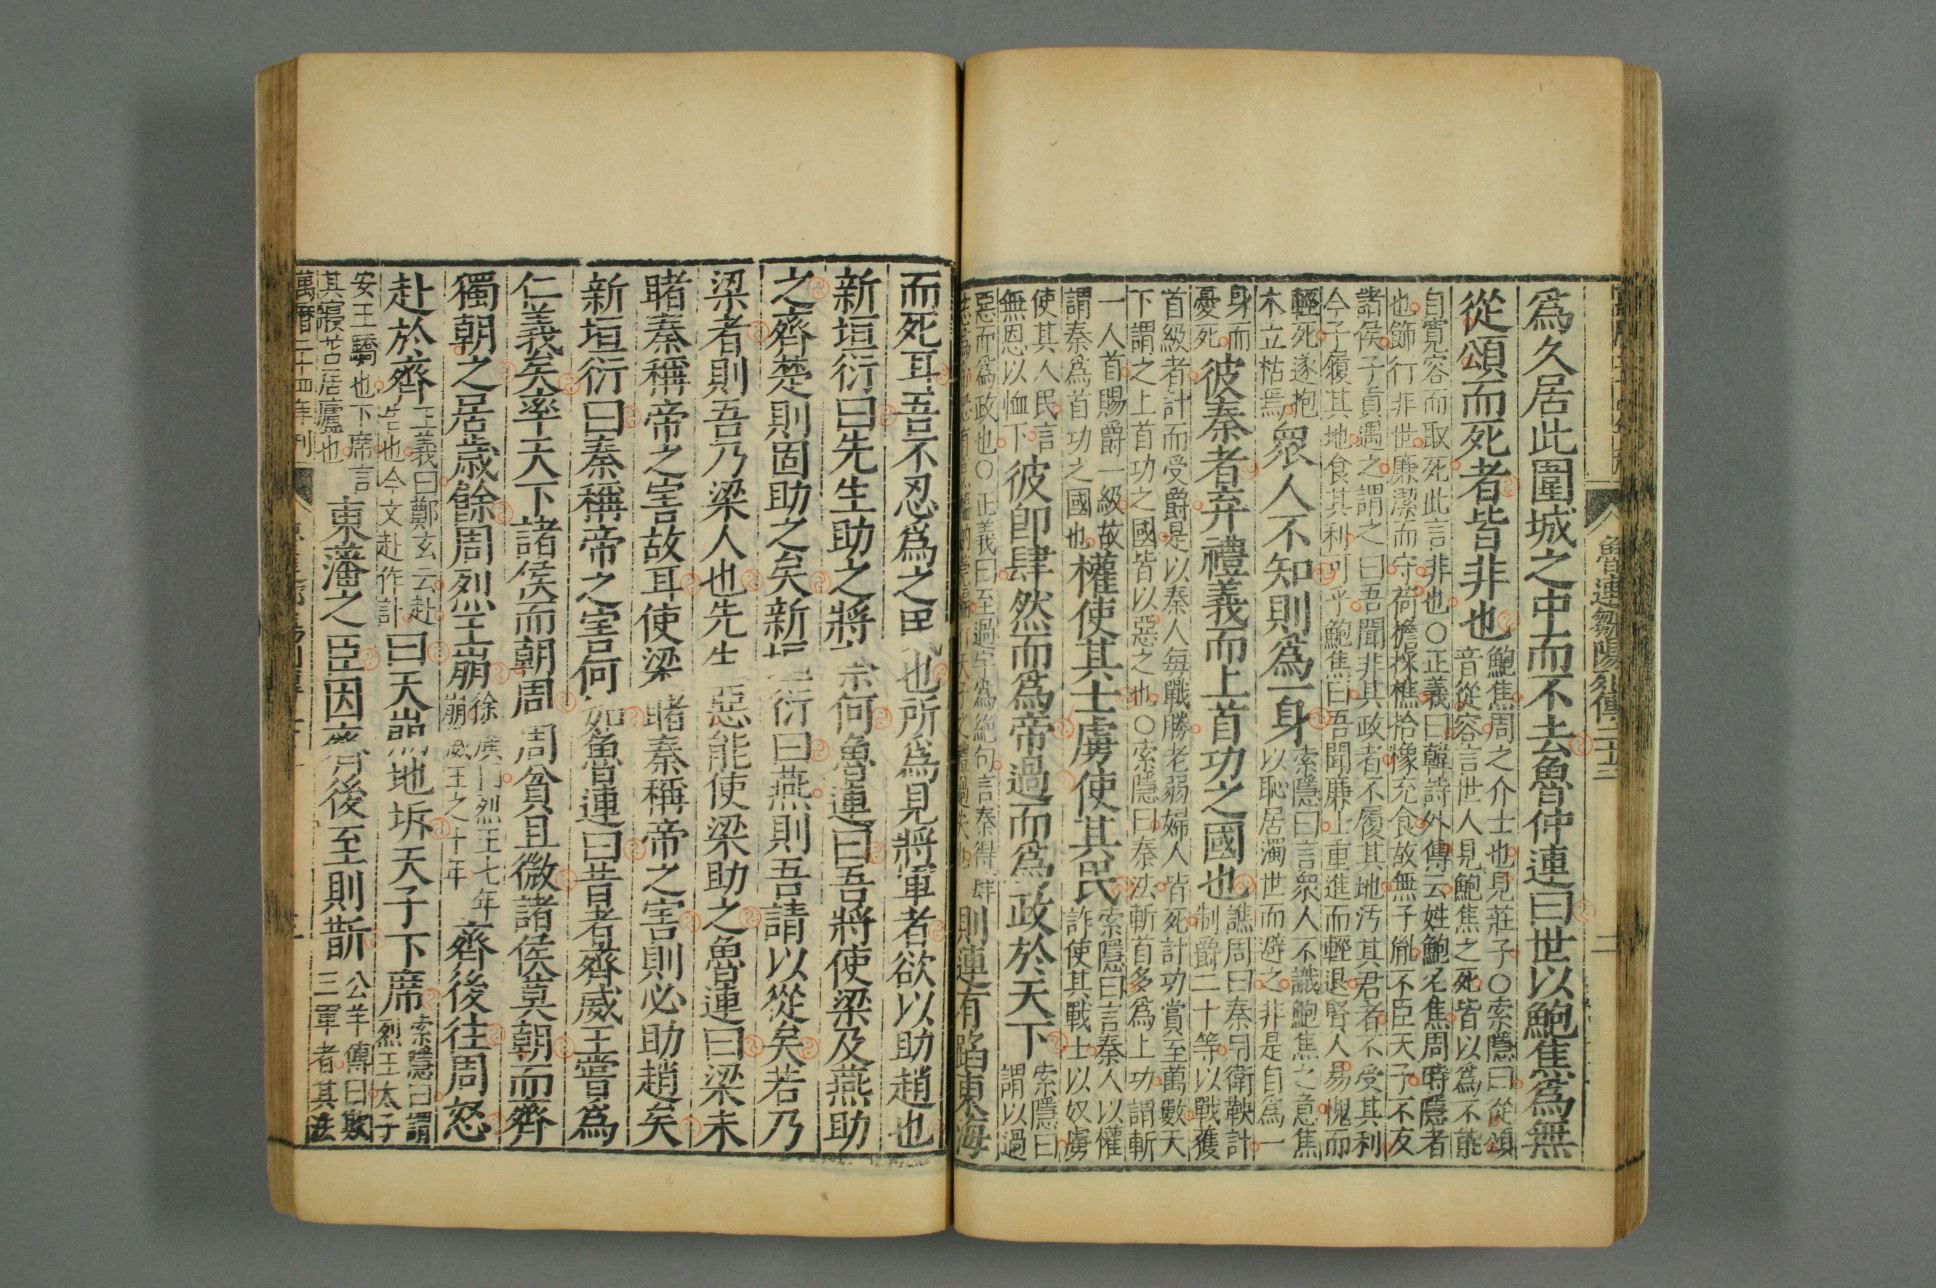 魯連鄒陽列傳二十三
二
爲久居此圍城之中而不去魯仲連曰世以鮑焦爲無
從頌而死者皆非也
鮑焦周之介士也見莊子○索隱曰從頌
音從容言世人見鮑焦之死皆以爲不能
自寬容而取死此言非也○正義曰韓詩外傳云姓鮑名焦周時隱者
也飾行非世廉潔而守荷擔採樵拾橡充食故無子胤不臣天子不友
諸侯子貢遇之謂之曰吾聞非其政者不履其地汚其君者不受其利
今子履其地食其利可乎鮑焦曰吾聞廉士重進而輕退賢人易愧而
輕死遂抱
木立枯焉
衆人不知則爲一身
索隱曰言衆人不識鮑焦之意焦
以恥居濁世而避之非是自爲一
身而
憂死
彼秦者弃禮義而上首功之國也
譙周曰秦用衛鞅計
制爵二十等以戰獲
首級者計而受爵是以秦人每戰勝老弱婦人皆死計功賞至萬數天
下謂之上首功之國皆以惡之也○索隱曰秦法斬首多爲上功謂斬
一人首賜爵一級故
謂秦爲首功之國也
權使其士虜使其民
索隱曰言秦人以權
詐使其戰士以奴虜
使其人民言
無恩以恤下
彼卽肆然而爲帝過而爲政於天下
索隱曰
謂以過
惡而爲政也○正義曰至過字爲絶句言秦得肆
則連有蹈東海
而死耳吾不忍爲之民也所爲見將軍者欲以助趙也
新垣衍曰先生助之將奈何魯連曰吾將使梁及燕助
之齊楚則固助之矣新垣衍曰燕則吾請以從矣若乃
梁者則吾乃梁人也先生惡能使梁助之魯連曰梁未
睹秦稱帝之害故耳使梁睹秦稱帝之害則必助趙矣
新垣衍曰秦稱帝之害何如魯連曰昔者齊威王嘗爲
仁義矣率天下諸侯而朝周周貧且微諸侯莫朝而齊
獨朝之居歲餘周烈王崩
徐廣曰烈王七年
崩威王之十年
齊後往周怒
赴於齊
正義曰鄭玄云赴
告也今文赴作訃
曰天崩地坼天子下席
索隱曰謂
烈王太子
安王驕也下席言
其寢苫居廬也
東藩之臣因齊後至則斮
公羊傳曰欺
三軍者其法
萬曆二十四年刊